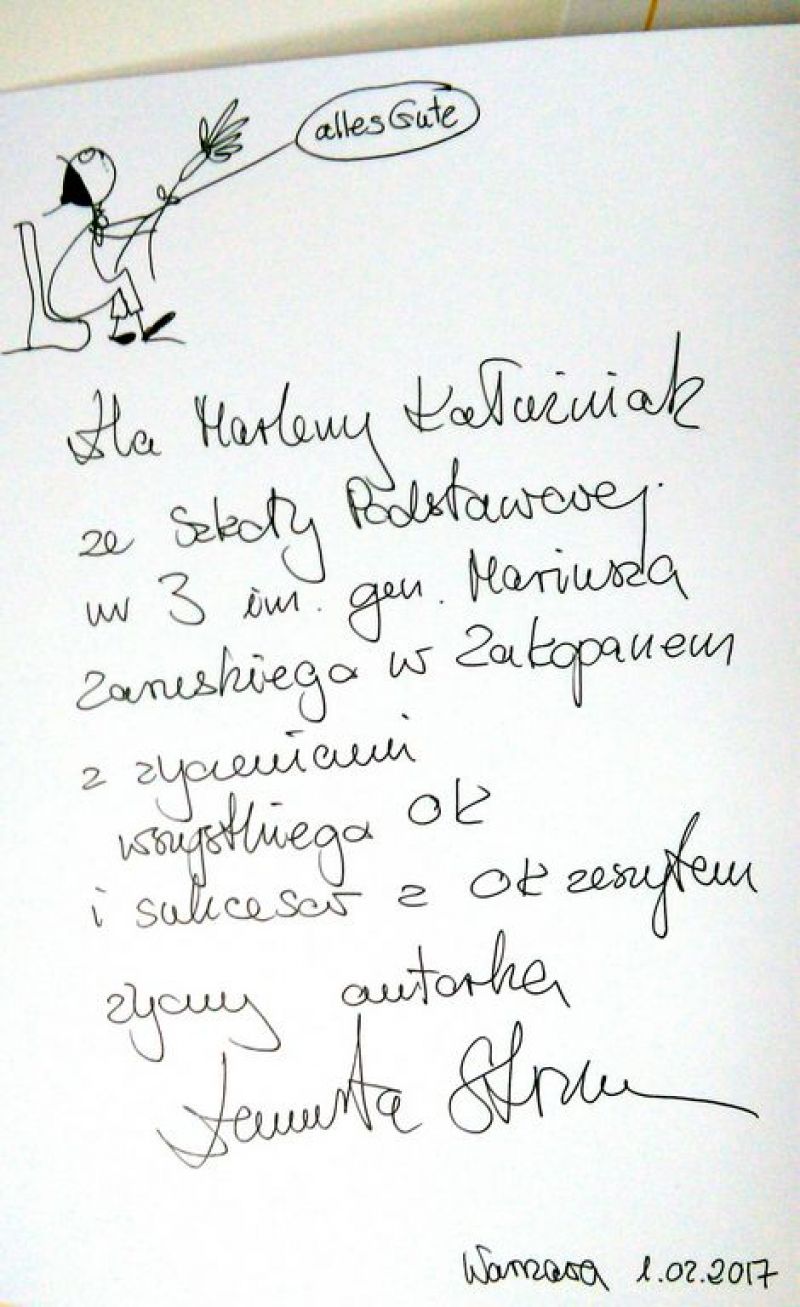 alles Gute
Dla Marleny Kałuźniak
ze Szkoły Podstawowej
nr 3 im. gen. Mariusza
Zaruskiego w Zakopanem
z życzeniami
wszystkiego OK
i sukcesów z OK zeszytem
życzy autorka
Danuta
Warszawa 1.02.2017